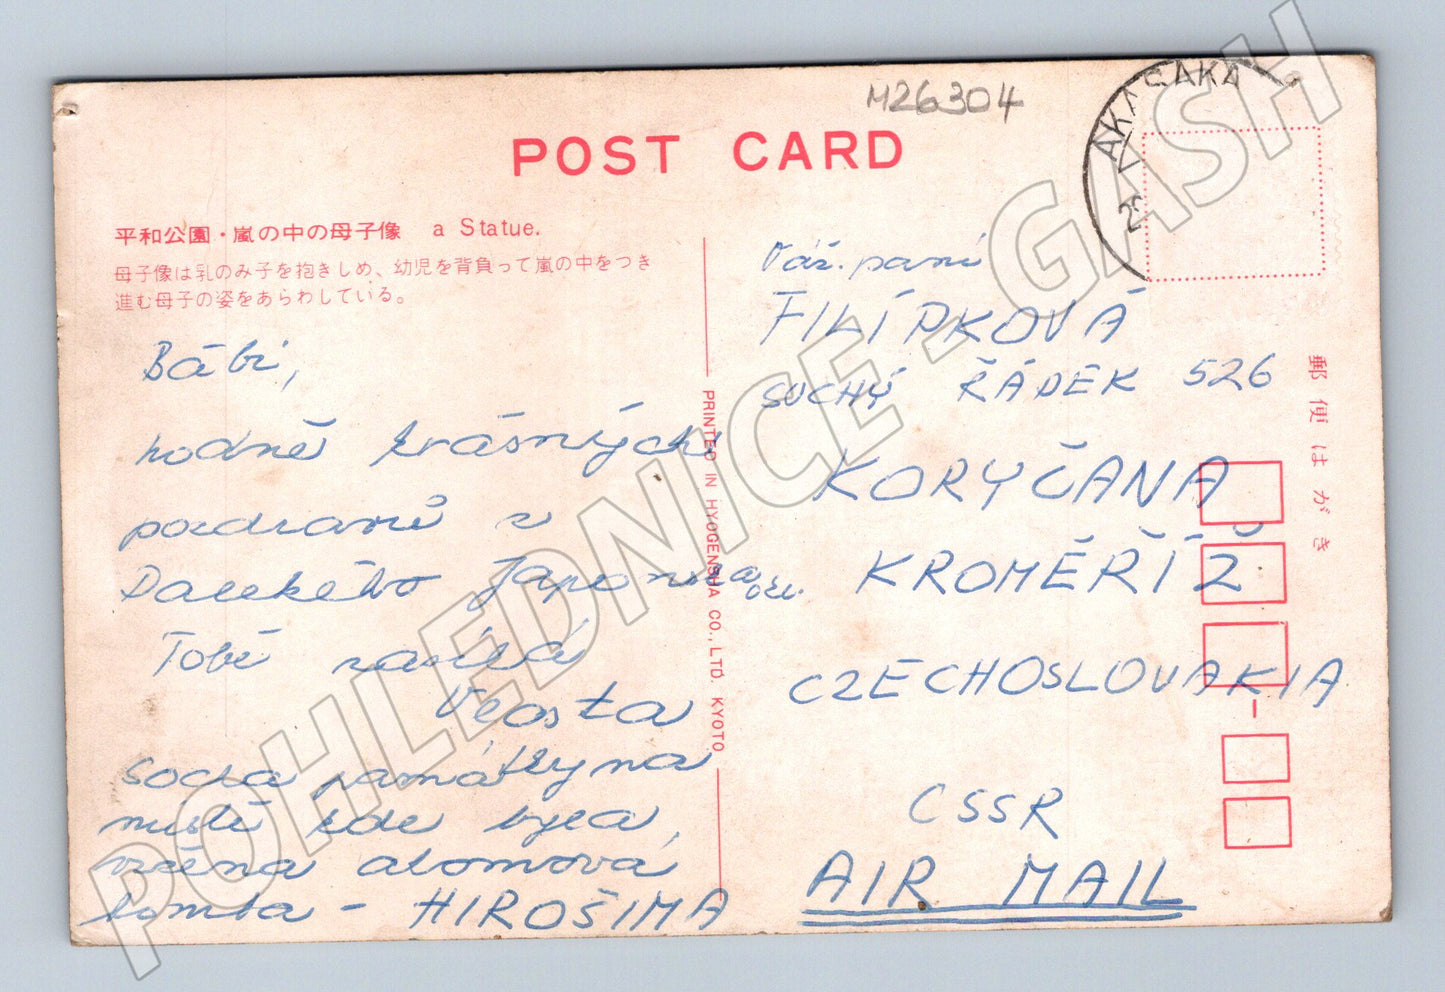 M26304
AKASAKA
25. V
POST CARD
平和公園・嵐の中の母子像 a Statue.
母子像は乳のみ子を抱きしめ、幼児を背負って嵐の中をつき
進む母子の姿をあらわしている。
Bábi,
hodně krásných
pozdravů z
Dalekého Japonska
Tobě zasílá
Vlasta
socha památky na
místě kde byla
vržena atomová
bomba - HIROŠIMA
PRINTED IN HYOGENSHA CO., LTD. KYOTO
Váž. paní
FILÍPKOVÁ
SUCHÝ ŘÁDEK 526
KORYČANA
KROMĚŘÍŽ
CZECHOSLOVAKIA
CSSR
AIR MAIL
郵便はがき
POHLEDNICE - GASH